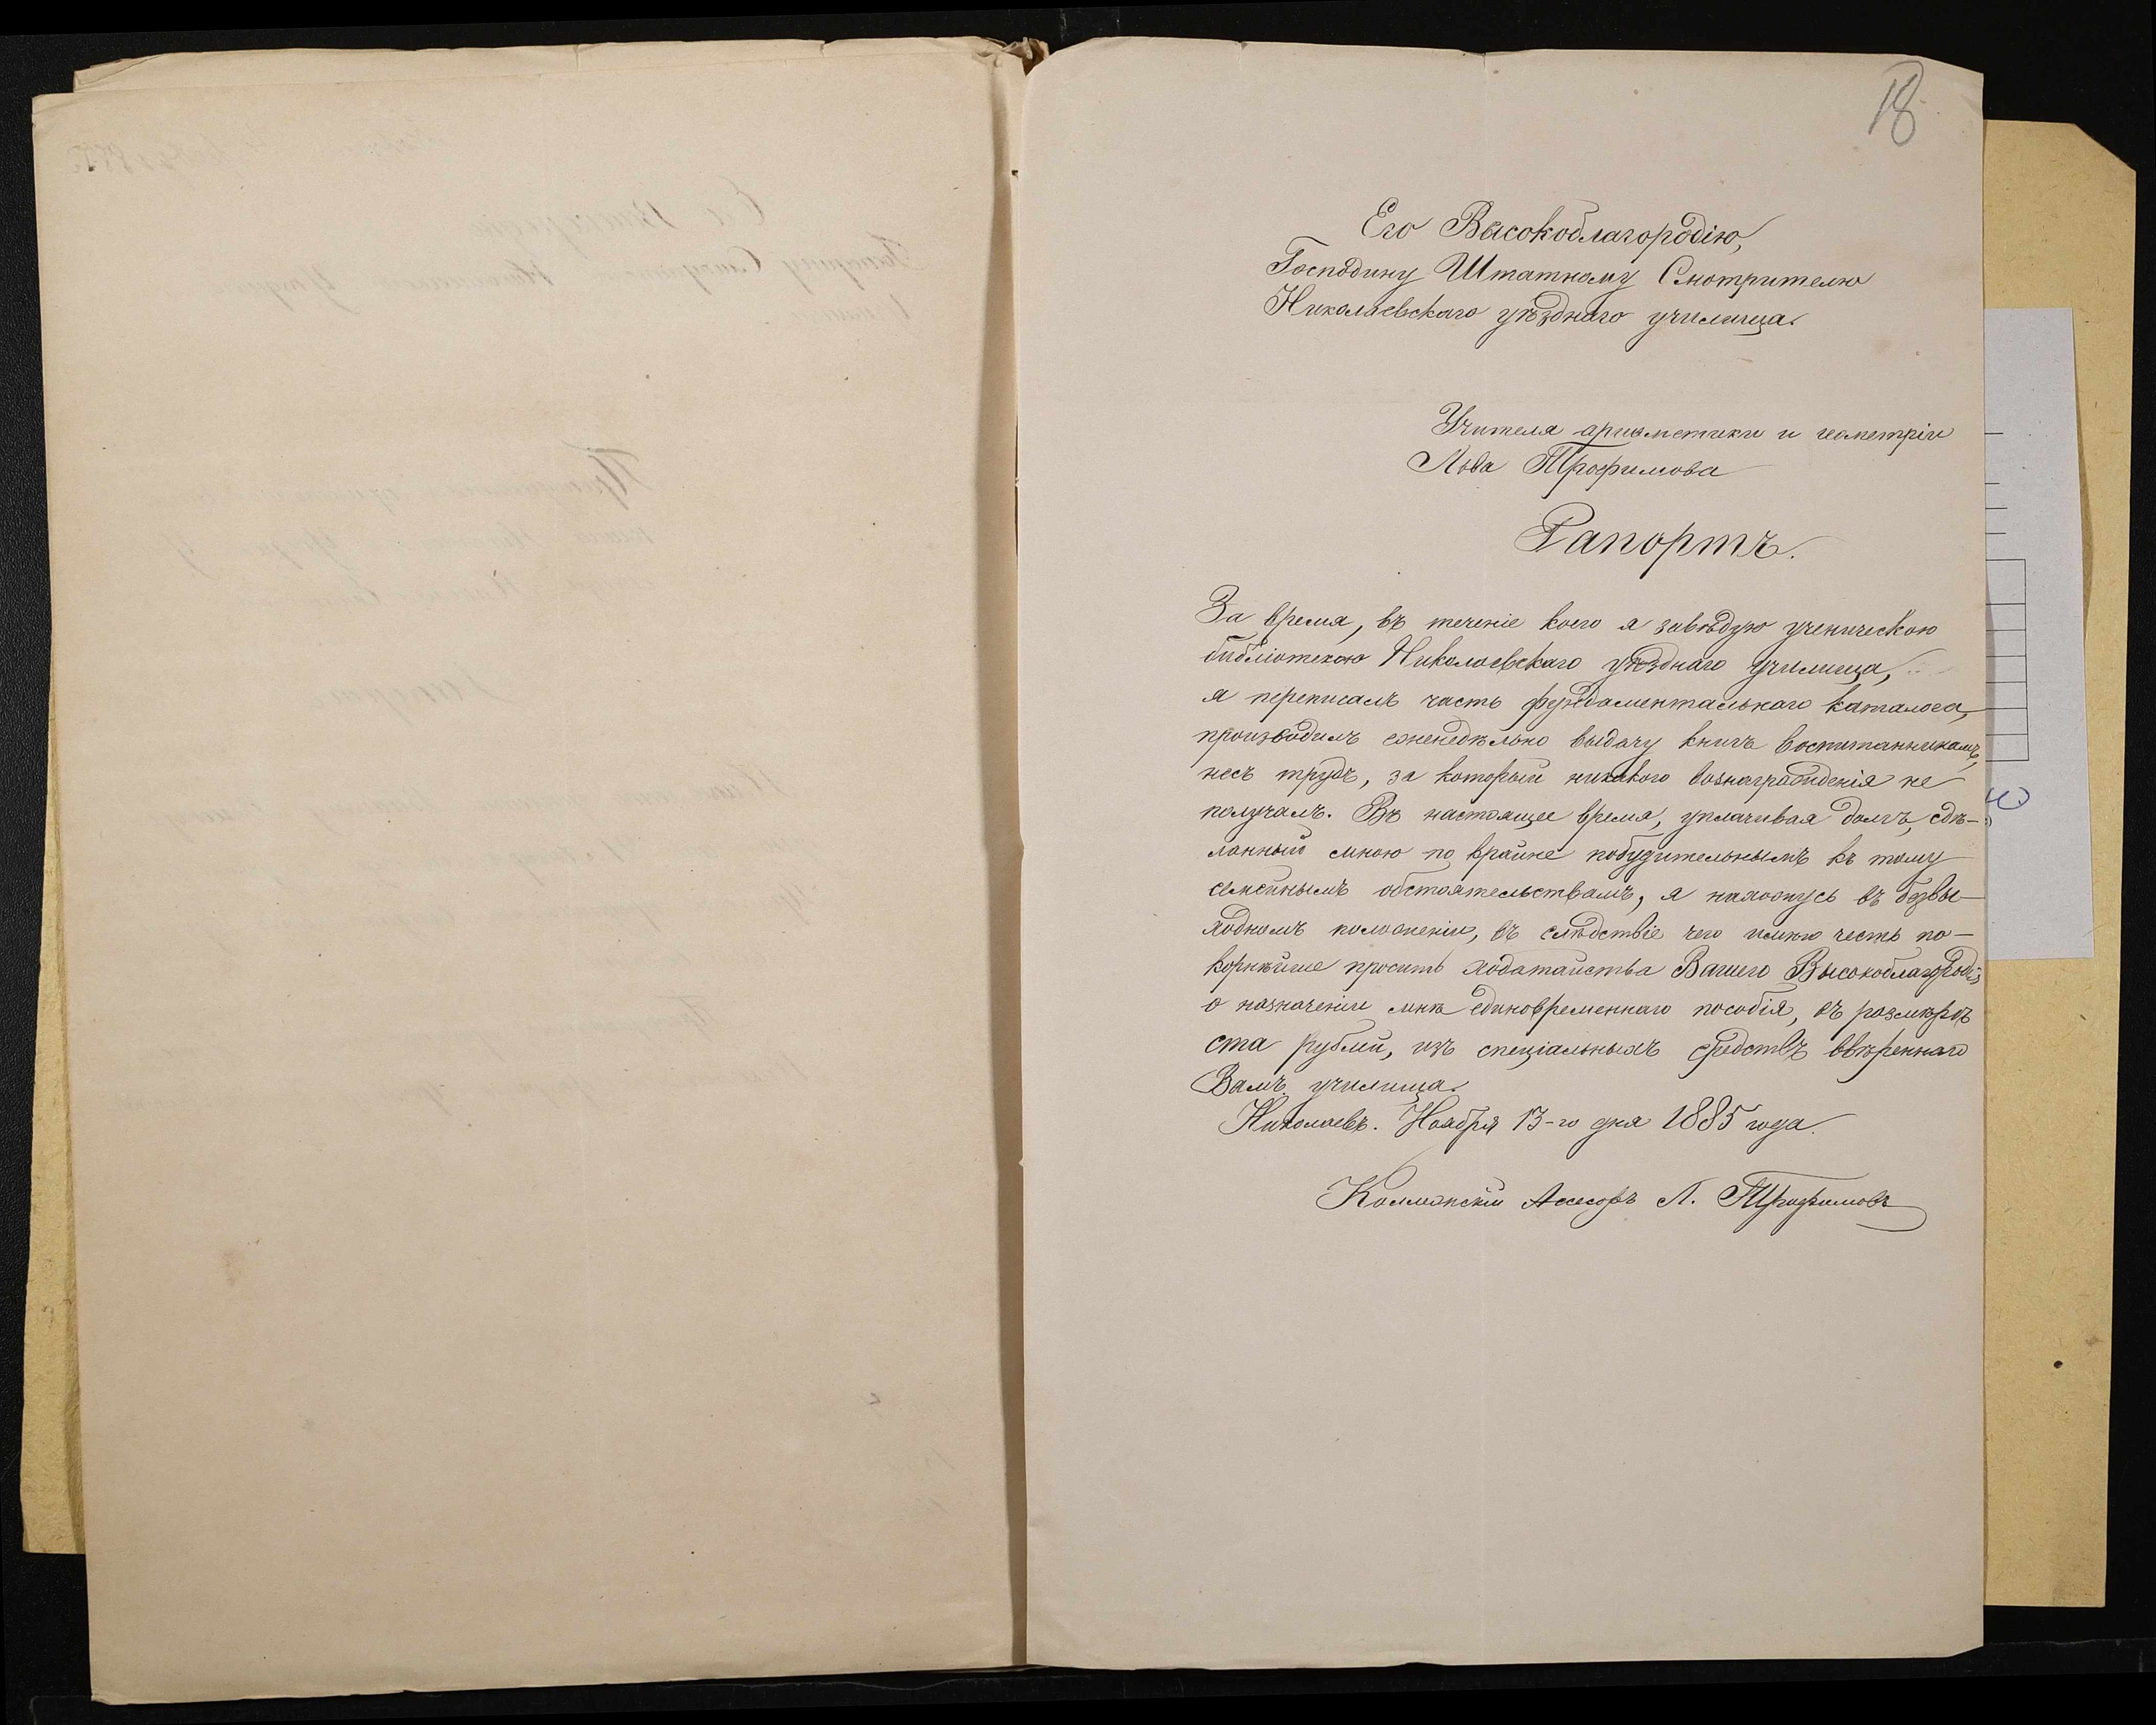 18
Его Высокоблагородію,
Господину Штатному Смотрителю
Николаевскаго уѣзднаго училища.
Учителя ариѳметики и геометріи
Льва Трофимова
Рапортъ.
За время, въ теченіе коего я завѣдую ученическою
библіотекою Николаевскаго уѣзднаго училища,
я переписалъ часть фундаментальнаго каталога,
производилъ еженедѣльно выдачу книгъ воспитанникамъ,
несъ трудъ, за который никакого вознагражденія не
получалъ. Въ настоящее время, уплачивая долгъ, сдѣ-
ланный мною по крайне побудительнымъ къ тому
семейнымъ обстоятельствамъ, я нахожусь въ безвы-
ходномъ положеніи, въ слѣдствіе чего имѣю честь по-
корнѣйше просить ходатайства Вашего Высокоблагородія
о назначеніи мнѣ единовременнаго пособія, въ размѣрѣ
ста рублей, изъ спеціальныхъ средствъ ввѣреннаго
Вамъ училища.
Николаевъ. Ноября 13-го дня 1885 года.
Коллежскій Ассесоръ Л. Трофимовъ